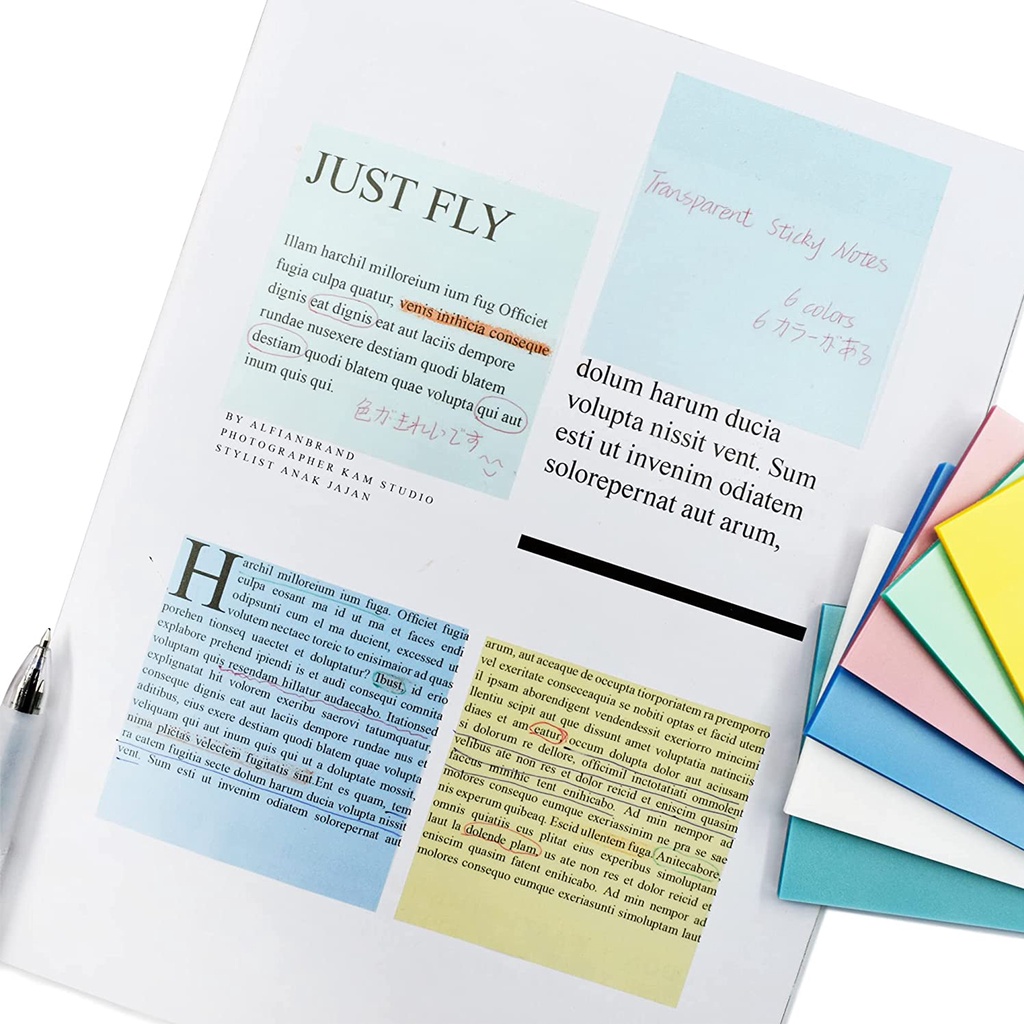 JUST FLY
Illam harchil milloreium ium fug Officiet
fugia culpa quatur, venis inihicia conseque
dignis eat dignis eat aut laciis dempore
rundae nusexere destiam quodi blatem
destiam quodi blatem quae volupta qui aut
inum quis qui.
色がきれいです
BY ALFIANBRAND
PHOTOGRAPHER KAM STUDIO
STYLIST ANAK JAJAN
Transparent Sticky Notes
6 colors
6 カラーがある
dolum harum ducia
volupta nissit vent. Sum
esti ut invenim odiatem
solorepernat aut arum,
Harchil milloreium ium fuga. Officet fugia
culpa eosant ma id ut ma et faces endi
odipsunti cum el ma ducient, excessed un
volutem nectaec toreic to enisimaior ad quas
porehen tionseq uaectet et doluptatur? Ibust, id ero
explabore prehend ipiendi is et audi consequi comnia
voluptam quis resendam hillatur audaecabo. Itationsed
explignatat hit volorem exeribu saerovi tatumquatur
conseque dignis eat aut laciis dempore rundae nus
aditibus, eius exere destiam quodi blatem quae volupta
veliquam qui aut inum quis qui ut a doluptate mossit
nima plictas velectem fugitatis sint Ent es quam, tem
ra eatem fugitia secte dolum harum ducia volupta nissit
vent. Sum esti ut invenim odiatem solorepernat aut
arum, aut aceaque de occupta tiorporiatem ra prempore
vel exeritate conseceaquia se nobiti optas et facid utem
il ipsam aborendigent vendendessit exeriorro mincim
llentin scipit aut que dissunt amet voluptatis natinctis
diaes et am eatur occum dolupta dolor aut aciusam
si dolorum re dellore, officimil inctotatiati ommolent
velibus ate non res et dolor reicid et eniscim quasim
faccus minihic tent enihicabo. Ad min nempor ad
molores consequo eumque exeriassinim ne pra se sae
nis experum quibeaq. Escid ullentem fuga. Anitecabore
omnis quiatiis cus plitat eius experibus simoluptam
laut la dolende plam, us ate non res et dolor reicid et
eniscim quasim fatent enihicabo. Ad min nempor ad
molores consequo eumque exeriasunti simoluptam laut